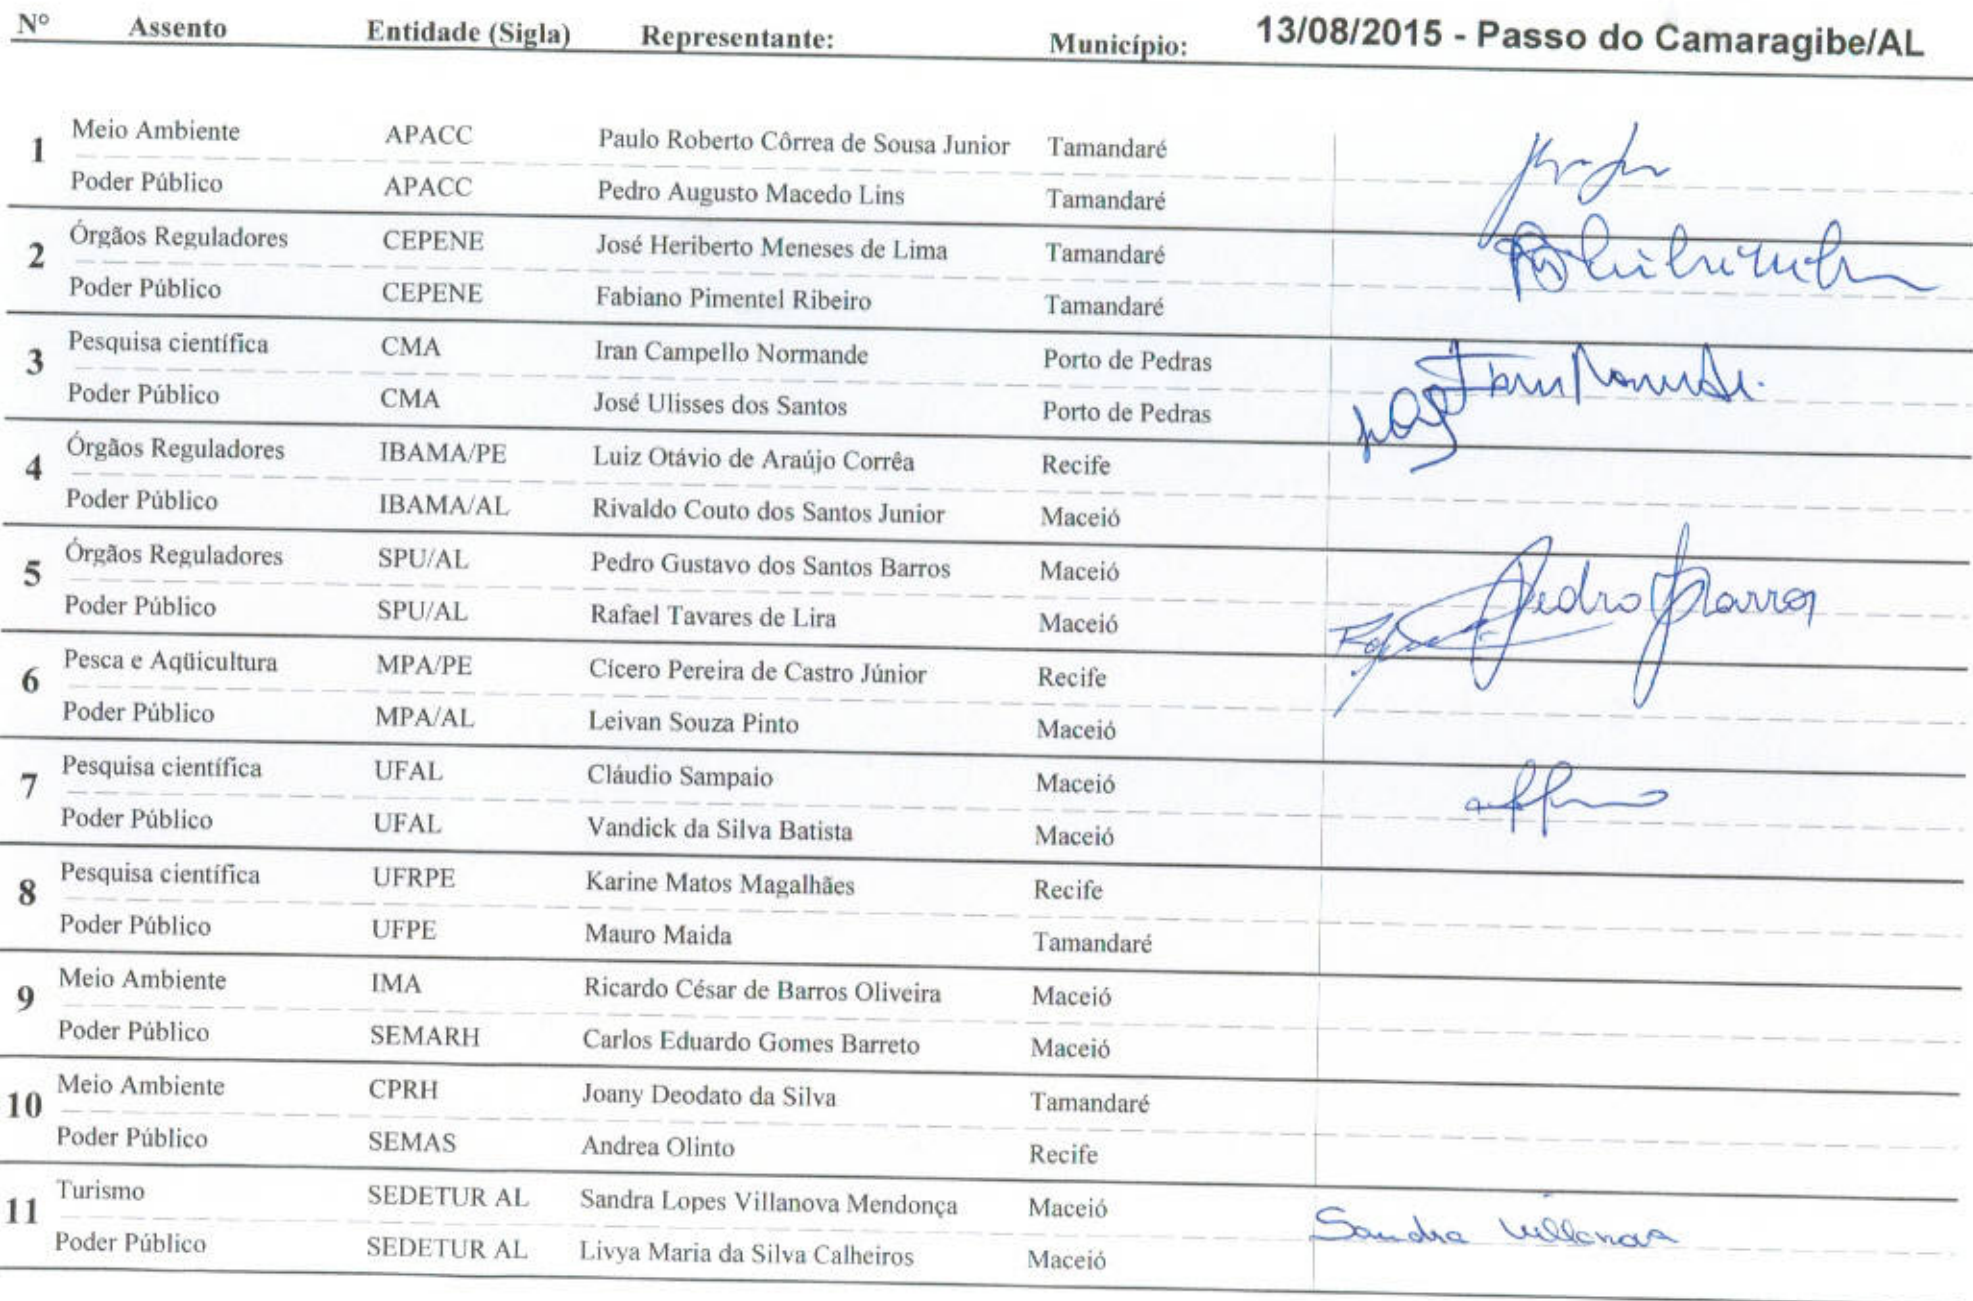 Nº Assento Entidade (Sigla) Representante: Município: 13/08/2015 - Passo do Camaragibe/AL
1 Meio Ambiente APACC Paulo Roberto Côrrea de Sousa Junior Tamandaré
Poder Público APACC Pedro Augusto Macedo Lins Tamandaré
2 Órgãos Reguladores CEPENE José Heriberto Meneses de Lima Tamandaré
Poder Público CEPENE Fabiano Pimentel Ribeiro Tamandaré
3 Pesquisa científica CMA Iran Campello Normande Porto de Pedras
Poder Público CMA José Ulisses dos Santos Porto de Pedras
4 Órgãos Reguladores IBAMA/PE Luiz Otávio de Araújo Corrêa Recife
Poder Público IBAMA/AL Rivaldo Couto dos Santos Junior Maceió
5 Órgãos Reguladores SPU/AL Pedro Gustavo dos Santos Barros Maceió Pedro Barros
Poder Público SPU/AL Rafael Tavares de Lira Maceió
6 Pesca e Aqüicultura MPA/PE Cícero Pereira de Castro Júnior Recife
Poder Público MPA/AL Leivan Souza Pinto Maceió
7 Pesquisa científica UFAL Cláudio Sampaio Maceió
Poder Público UFAL Vandick da Silva Batista Maceió
8 Pesquisa científica UFRPE Karine Matos Magalhães Recife
Poder Público UFPE Mauro Maida Tamandaré
9 Meio Ambiente IMA Ricardo César de Barros Oliveira Maceió
Poder Público SEMARH Carlos Eduardo Gomes Barreto Maceió
10 Meio Ambiente CPRH Joany Deodato da Silva Tamandaré
Poder Público SEMAS Andrea Olinto Recife
11 Turismo SEDETUR AL Sandra Lopes Villanova Mendonça Maceió Sandra Villanova
Poder Público SEDETUR AL Livya Maria da Silva Calheiros Maceió